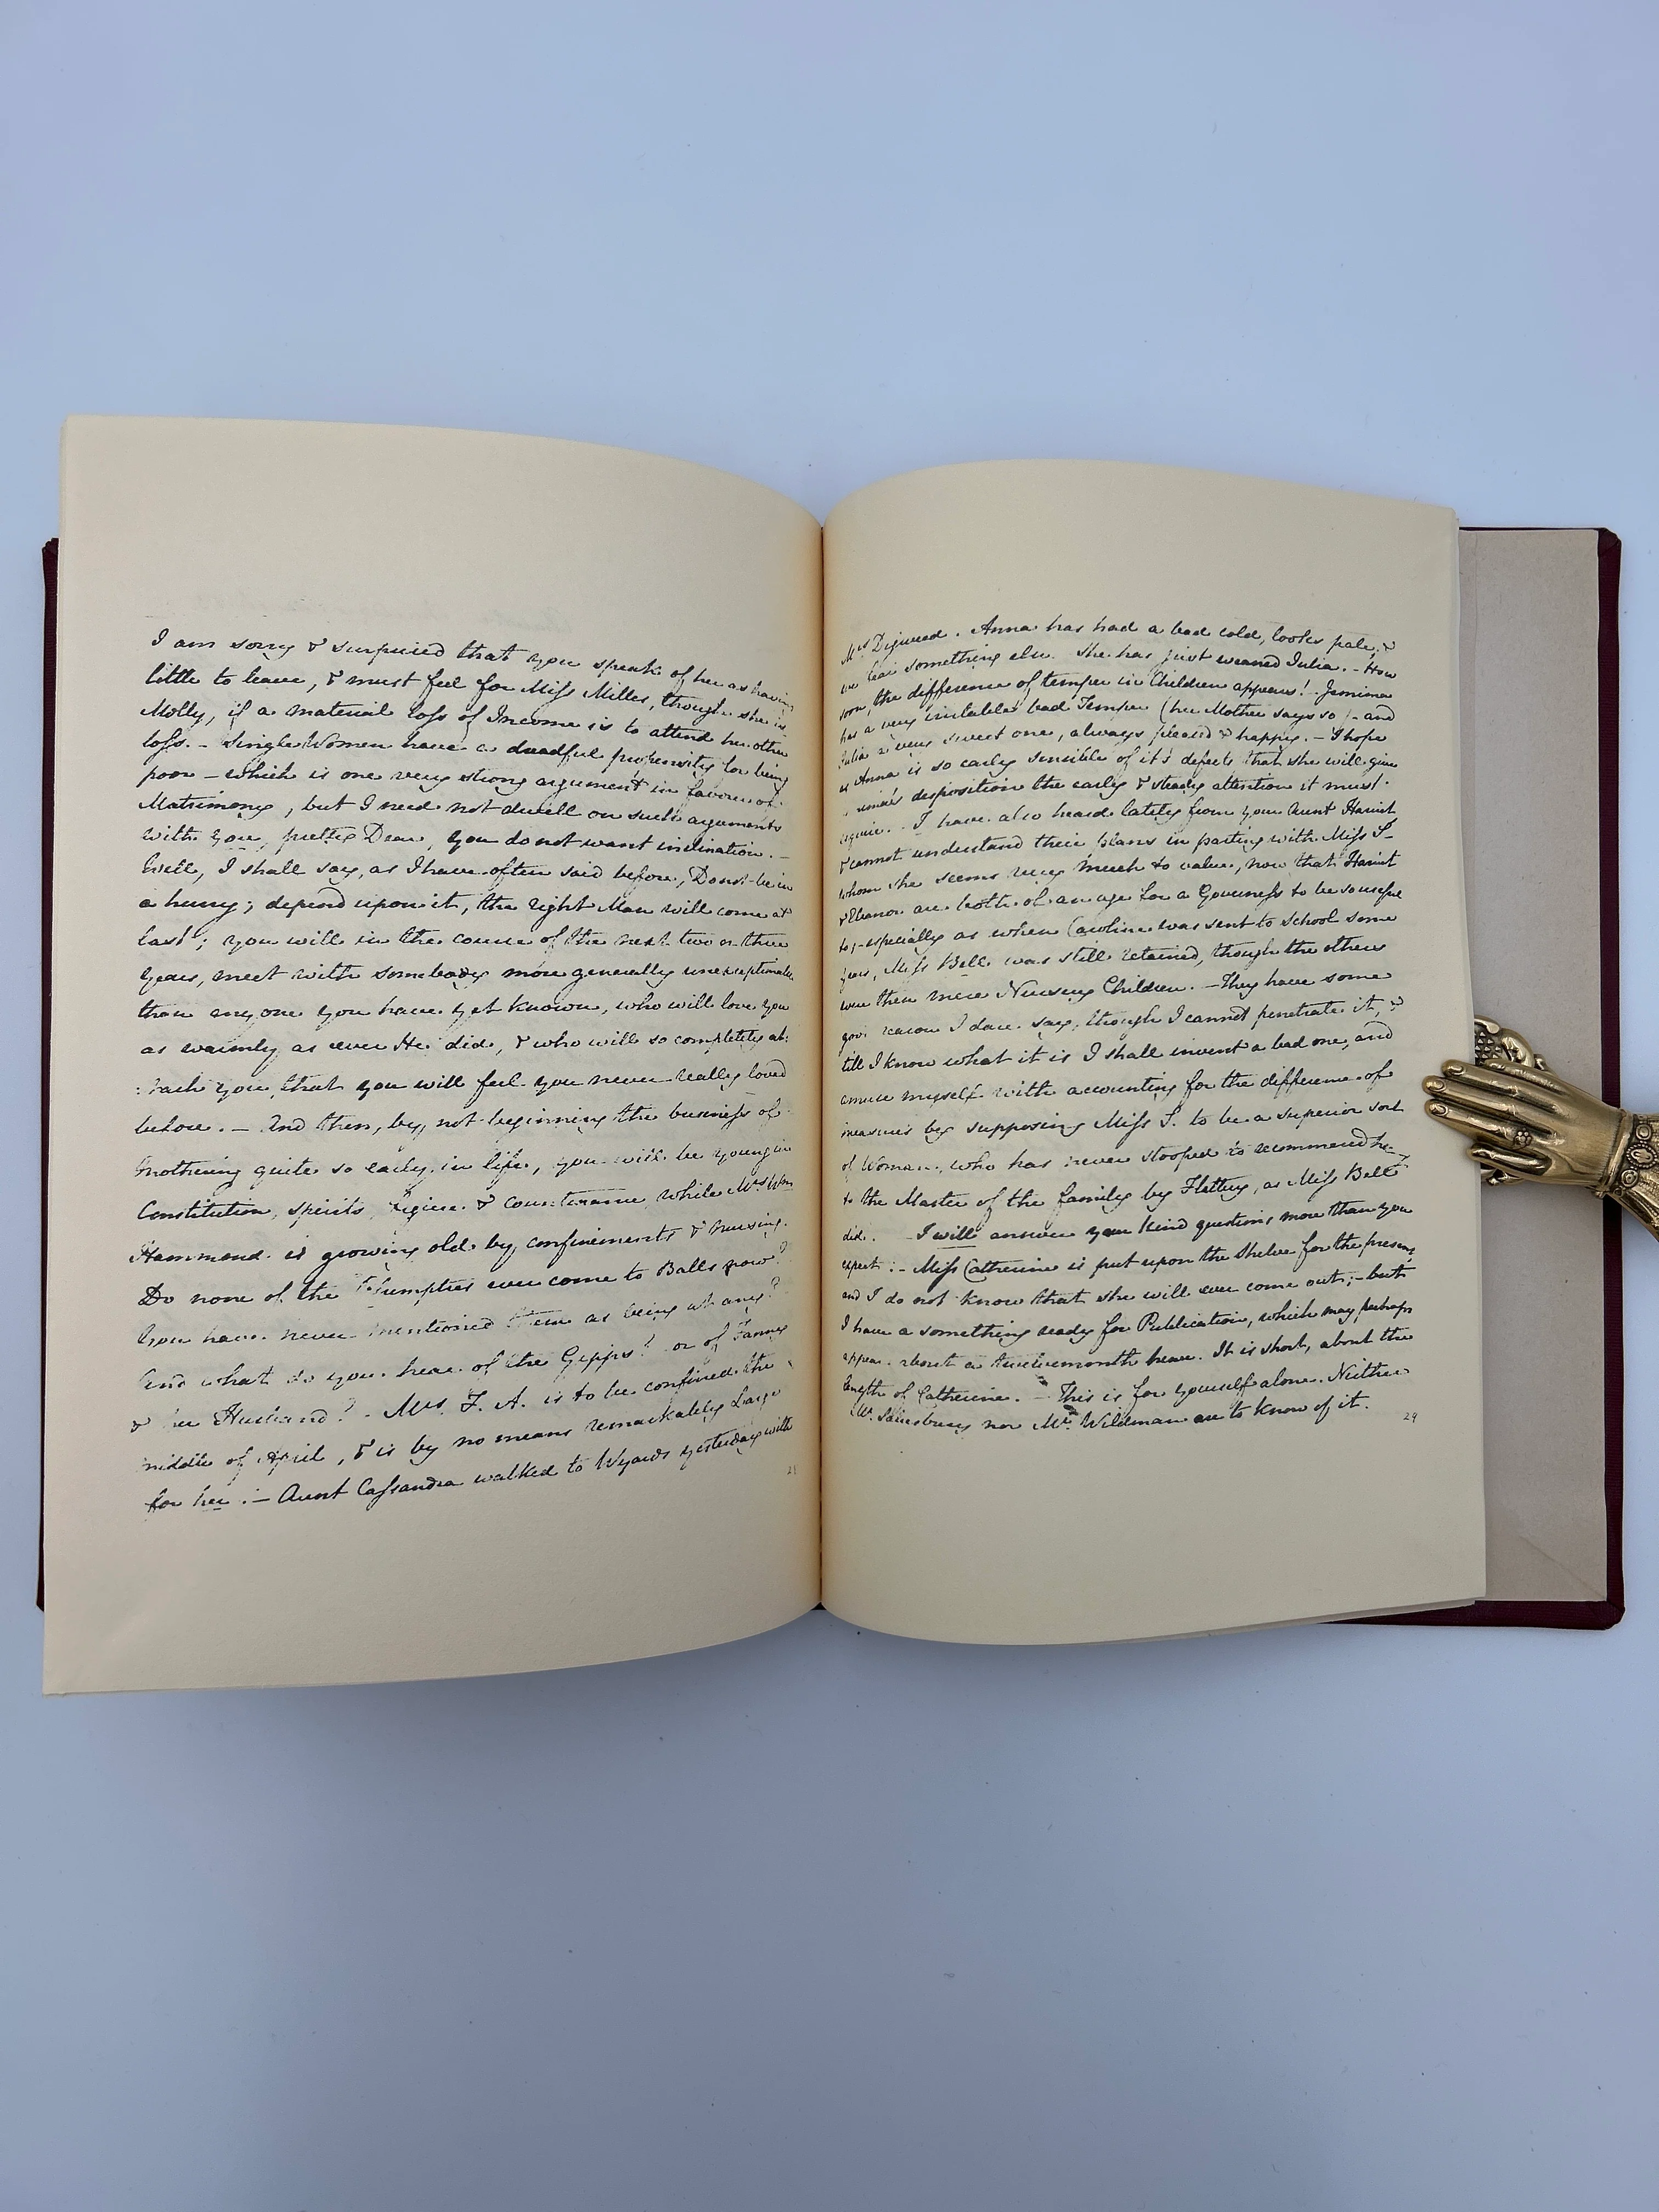 I am sorry & surprised that you speak of her as having
little to leave, & must feel for Miss Milles, though she is
Molly, if a material loss of Income is to attend her other
loss. – Single Women have a dreadful propensity for being
poor – which is one very strong argument in favour of
Matrimony, but I need not dwell on such arguments
with you, pretty Dear, you do not want inclination. –
Well, I shall say, as I have often said before, Do not be in
a hurry; depend upon it, the right Man will come at
last; you will in the course of the next two or three
years, meet with somebody more generally unexceptionable
than anyone you have yet known, who will love you
as warmly as ever He did, & who will so completely at:
:tach you, that you will feel you never really loved
before. – And then, by not beginning the business of
Mothering quite so early in life, you will be young in
Constitution, spirits, figure & countenance, while Mrs Wm
Hammond is growing old by confinements & nursing.
Do none of the Plumptres ever come to Balls now?
You have never mentioned them as being at any?
And what do you hear of the Gipps? or of Fanny
& her Husband? – Mrs. F. A. is to be confined the
middle of April, & is by no means remarkably Large
for her. – Aunt Cassandra walked to Wyards yesterday with
28
Mrs Digweed. Anna has had a bad cold, looks pale, &
we fear something else. She has just weaned Julia. – How
soon, the difference of temper in Children appears! – Jemima
has a very irritable bad Temper (her Mother says so) – and
Julia a very sweet one, always pleased & happy. – I hope
as Anna is so early sensible of it's defects, that she will give
Jemima's disposition the early & steady attention it must
require. – I have also heard lately from your Aunt Harriet
& cannot understand their plans in parting with Miss S–
whom she seems very much to value, now that Harriet
& Eleanor are both of an age for a Governess to be so useful
to; – especially as when Caroline was sent to School some
years, Miss Bell was still retained, though the others
were then mere Nursing Children. – They have some
good reason I dare say, though I cannot penetrate it, &
till I know what it is I shall invent a bad one, and
amuse myself with accounting for the difference of
measures by supposing Miss S. to be a superior sort
of Woman, who has never stooped to recommend herself
to the Master of the family by Flattery, as Miss Bell
did. – I will answer your kind questions more than you
expect. – Miss Catherine is put upon the Shelve for the present,
and I do not know that she will ever come out; – but
I have a something ready for Publication, which may perhaps
appear about a twelvemonth hence. It is short, about the
length of Catherine. – This is for yourself alone. Neither
Mr. Salusbury nor Mr. Wildman are to know of it.
29